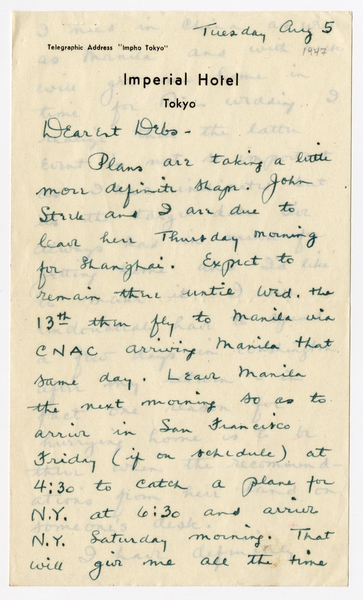 Tuesday Aug 5
1947
Telegraphic Address "Impho Tokyo"
Imperial Hotel
Tokyo
Dearest Debs -
Plans are taking a little
more definite shape. John
Steele and I are due to
leave here Thursday morning
for Shanghai. Expect to
remain there until Wed. the
13th then fly to Manila via
CNAC arriving Manila that
same day. Leave Manila
the next morning so as to
arrive in San Francisco
Friday (if on schedule) at
4:30 to catch a plane for
N.Y. at 6:30 and arrive
N.Y. Saturday morning. That
will give me all the time